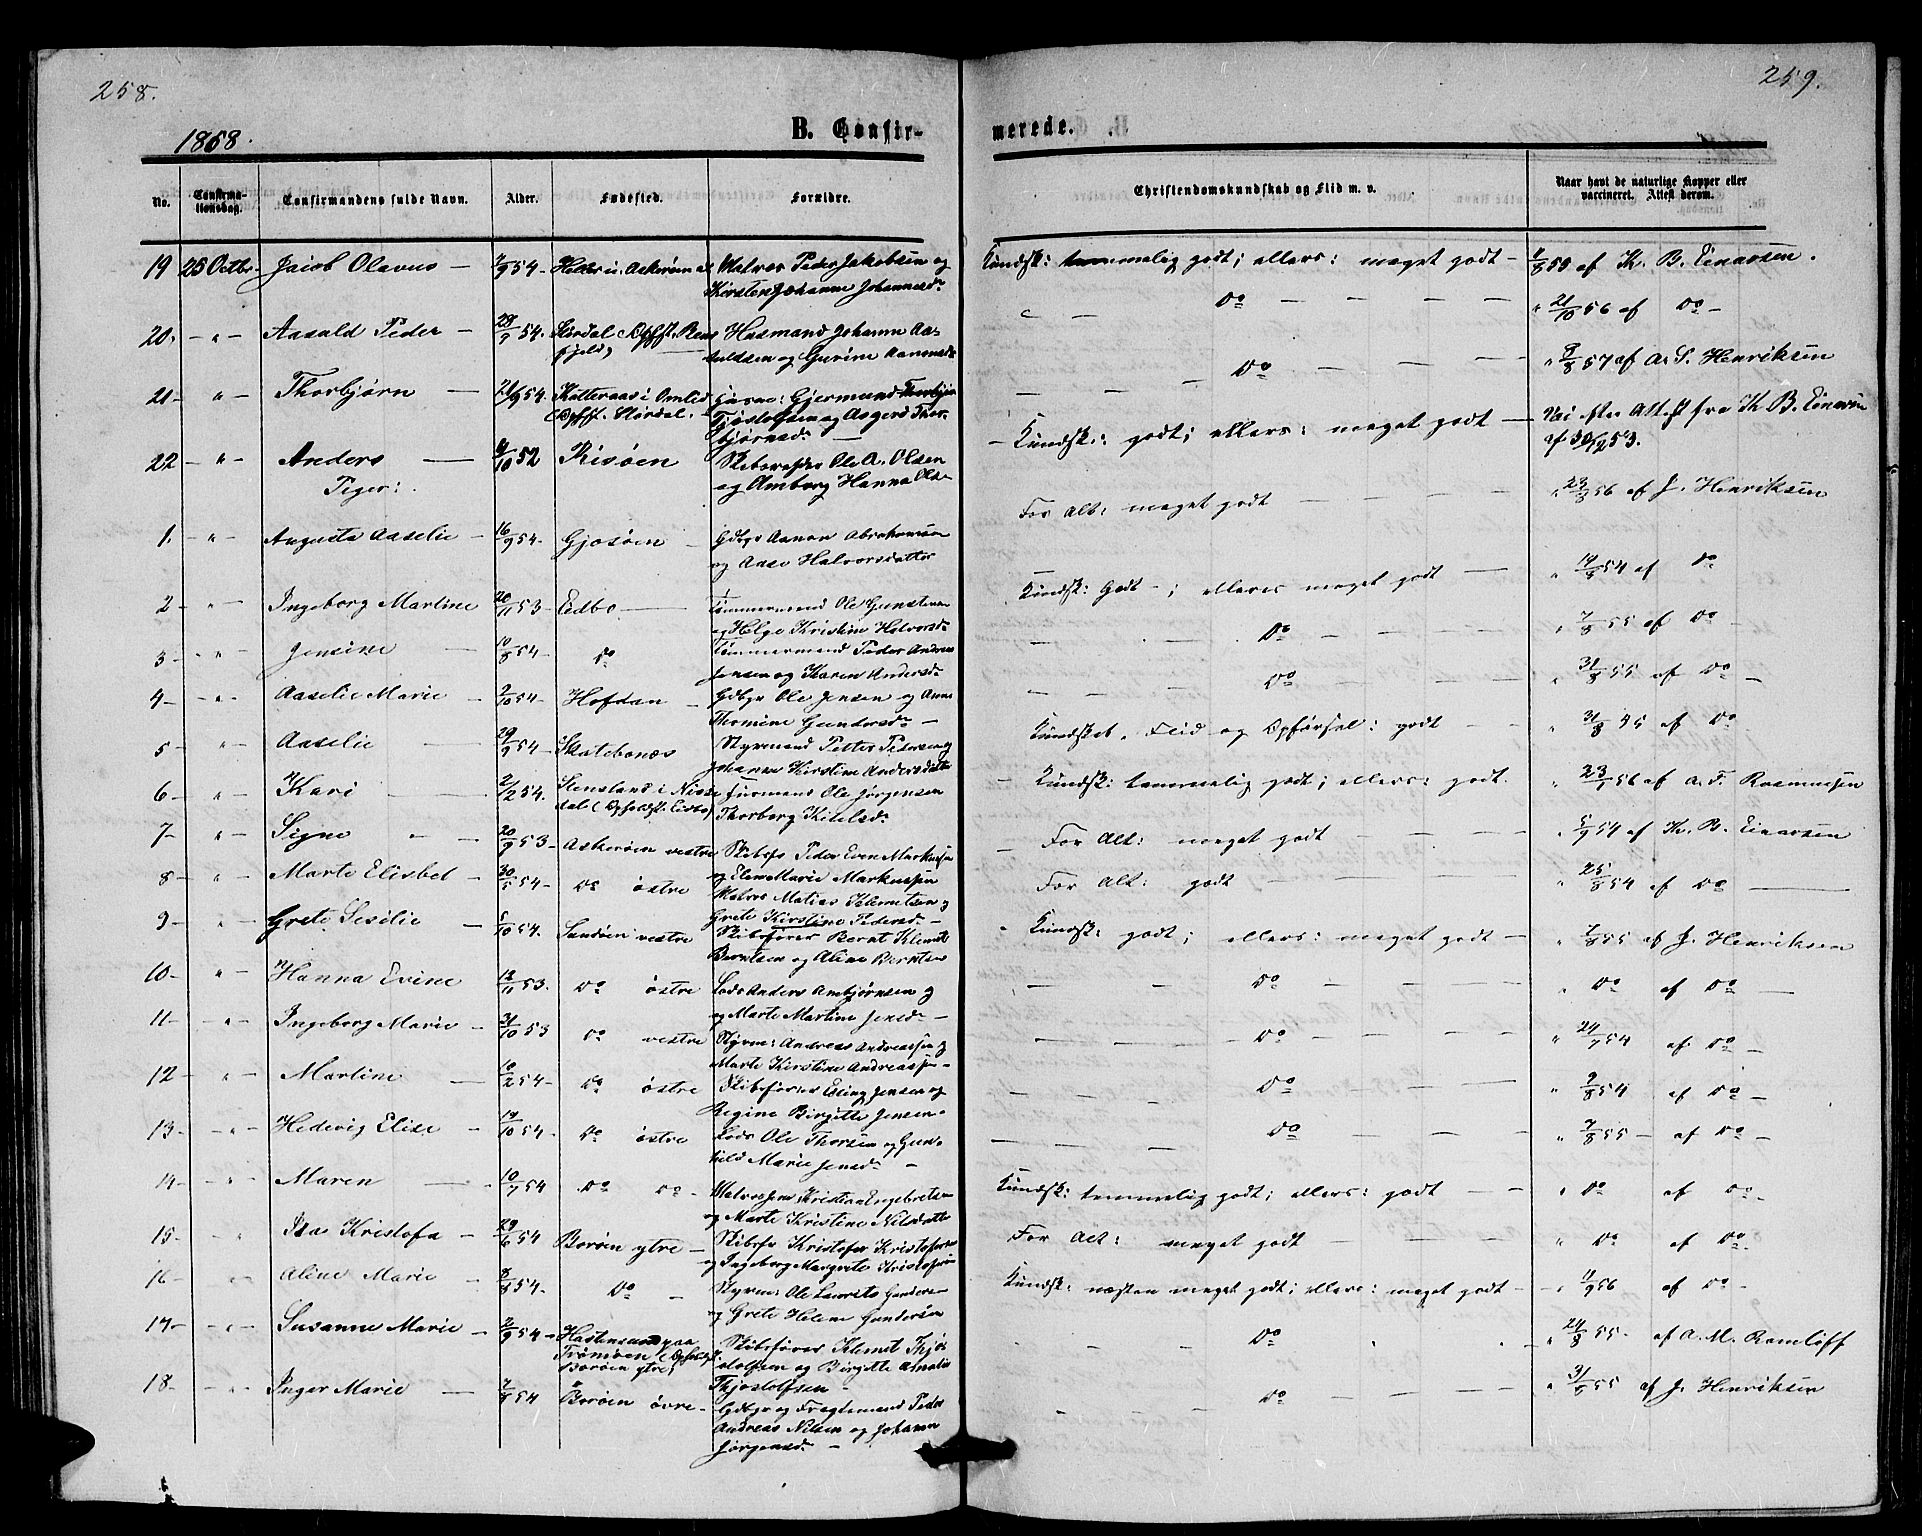 258.
259.
1868.
B. Confir-
merede.
No.
Confirma-
tionsdag.
Confirmandens fulde Navn.
Alder.
Fødested.
Forældre.
Christendomskundskab og Flid m. v.
Naar havt de naturlige Kopper eller
vaccineret. Attest derom.
19 25 Octbr. Jacob Olavus — 54 - Askerøen Matros Peder Jakobsen og
Kirsten Johanne Johannesd.
Kundsk: temmelig godt; ellers: meget godt — 55 af K. B. Einarsen.
20. - " - Aasuld Peder — 28/9 54. Husmand Johann Aa-
sulssen og Gurine Aanonsd.
Do — — — — " 21/10 56 af Do —
21 - " Thorbjørn — 54. i Omlid Gjermund
Tjostolfsen og Asgerd Thor-
bjørnsd. —
Do — — — " 9/8 57 af A. S. Henriksen
22 - " - Anders — 52 Risøen Ole A. Olsen
og Amborg Hanna Ols.
Kundsk.: godt; ellers: meget godt — Attest fra K. B. Einarsen
af 53.
Piger:
1. - " - Augusta Aaselie — 16/9 54 - Gjosøen — Gdbgr Aanon Abrahamsen
og Aase Halvorsdatter
For Alt: meget godt — — — — " 23/8 56 af J. Henriksen
2 - " - Ingeborg Martine 20/11 53 - Eidbo — Tømmermand Ole Gunstensen
og Helge Kristine Halvorsd.
Kundsk: Godt - ; ellers meget godt — " 14/9 54 af Do
3 - " - Jensine — 10/8 54 - Do Tømmermand Peder Andreas
Jensen og Karen Andersd.
Do — — — " 7/8 55 af Do —
4 - " - Aaselie Marie — 2/10 54 - Hofdan — Gdbgr Ole Jensen og Anne
Thomine Gundersd. —
Do — — — " 31/8 55 af Do —
5 - " - Aaselie — 29/9 54 - Skatebonæs Styrmand Petter Pedersen og
Johanne Kirstine Andersdatter
Kundskab, Flid og Opførsel: godt — " 31/8 45 af Do
6 - " - Kari — 2/2 54. Stensland i Nisse-
dal (Opholdst. Eidbo) Furmand Ole Jørgensen
Thorborg Kitelsd.
Kundsk: temmelig godt; ellers: godt. " 23/7 56 af A. F. Rasmussen
7 - " - Signe — 20/9 53 - Askerøen vestre Skibsf. Peder Even Markussen
og Elen Marie Markussen
For Alt: meget godt — — — " 5/9 54 af K. B. Einarsen
8 - " - Marte Elisbet — 30/5 54 - Do østre Matros Matias Klemetsen og
Grete Kirstine Pedersd. —
For Alt: godt — — — " 25/8 54 af Do —
9 - " - Grete Sesilie — 5/10 54. Sandøen vestre Skibsfører Bernt Klemet
Berntsen og Aline Berntsen
Kundsk: godt; ellers: meget godt — " 7/8 55 af J. Henriksen
10 - " - Hanna Evine 12/11 53. Do østre Lods Anders Ambjørnsen og
og Marte Martine Jensd. —
Do — — — " Do af Do —
11 - " - Ingeborg Marie — 31/10 53 Do vestre Styrm: Andreas Andreassen og
Marte Kirstine Andreassen —
Do — — — " 24/7 54 af Do —
12 - " - Martine — 10/2 54 - Do østre Skibsfører Essing Jensen og
Regine Birgitte Jensen.
Do — — — " 9/8 54 af Do —
13 - " - Hedevig Elise — 19/10 54 - Do østre Lods Ole Thorsen og Gun-
hild Marie Jensd. —
Do — — — " 7/8 55 — af Do —
14 - " - Maren — 10/7 54 Do Do - Kristian Engebretsen
og Marte Kristine Nilsdatter
Kundsk: temmelig godt; ellers: godt — — " Do af Do —
15 - " - Isa Kristofa — 29/6 54 Borøen ytre — Skibsf. Kristofer Kristofersen
og Ingeborg Margrete Kristofersen
For Alt: meget godt — — — — " Do af Do.
16 - " - Aline Marie — 8/8 54. Do — Styrm: Ole Laurits Gundersen
og Grete Helene Gundersen
Kundsk: næsten meget godt; ellers: meget godt — " 11/9 56 af Do —
17 - " - Susanne Marie — 2/9 54 - Hastensund paa
Tromøen (Opholdst.
Borøen ytre) Skibsfører Klemet Thjos-
tolfsen og Birgitte Amalie
Thjostolfsen —
Do " 24/8 55 - af A. M. Ramløff
18 - " - Inger Marie — 54 Borøen øvre — Gdbgr og Fragtemand Peder
Andreas Nilsen og Johanne
Jørgensd. —
Do — — — " 31/8 55 af J. Henriksen